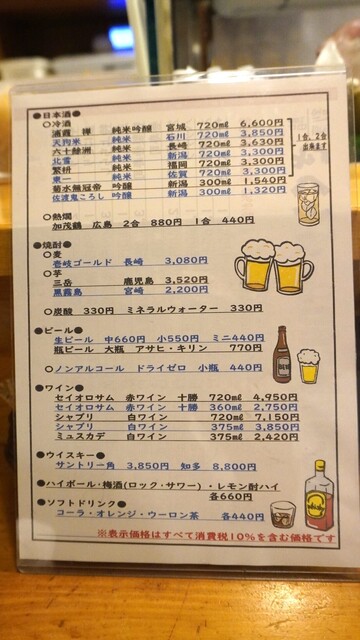 ●日本酒●
○冷酒
浦霞 禅 純米吟醸 宮城 720㎖ 6,600円
天狗米 純米 石川 720㎖ 3,850円
六十餘洲 純米 長崎 720㎖ 3,630円
北雪 純米 新潟 720㎖ 3,300円
繁桝 純米 福岡 720㎖ 3,300円
東一 純米 佐賀 720㎖ 3,300円
菊水無冠帝 吟醸 新潟 300㎖ 1,540円
佐渡鬼ころし 吟醸 新潟 300㎖ 1,320円
1合、2合
出来ます
○熱燗
加茂鶴 広島 2合 880円 1合 440円
●焼酎●
○麦
壱岐ゴールド 長崎 3,080円
○芋
三岳 鹿児島 3,520円
黒霧島 宮崎 2,200円
○炭酸 330円 ミネラルウォーター 330円
●ビール●
生ビール 中660円 小550円 ミニ440円
瓶ビール 大瓶 アサヒ・キリン 770円
○ノンアルコール ドライゼロ 小瓶 440円
●ワイン●
セイオロサム 赤ワイン 十勝 720㎖ 4,950円
セイオロサム 赤ワイン 十勝 360㎖ 2,750円
シャブリ 白ワイン 720㎖ 7,150円
シャブリ 白ワイン 375㎖ 3,850円
ミュスカデ 白ワイン 375㎖ 2,420円
●ウイスキー●
サントリー角 3,850円 知多 8,800円
●ハイボール・梅酒(ロック・サワー)・レモン酎ハイ
各660円
●ソフトドリンク●
コーラ・オレンジ・ウーロン茶 各440円
※表示価格はすべて消費税10%を含む価格です